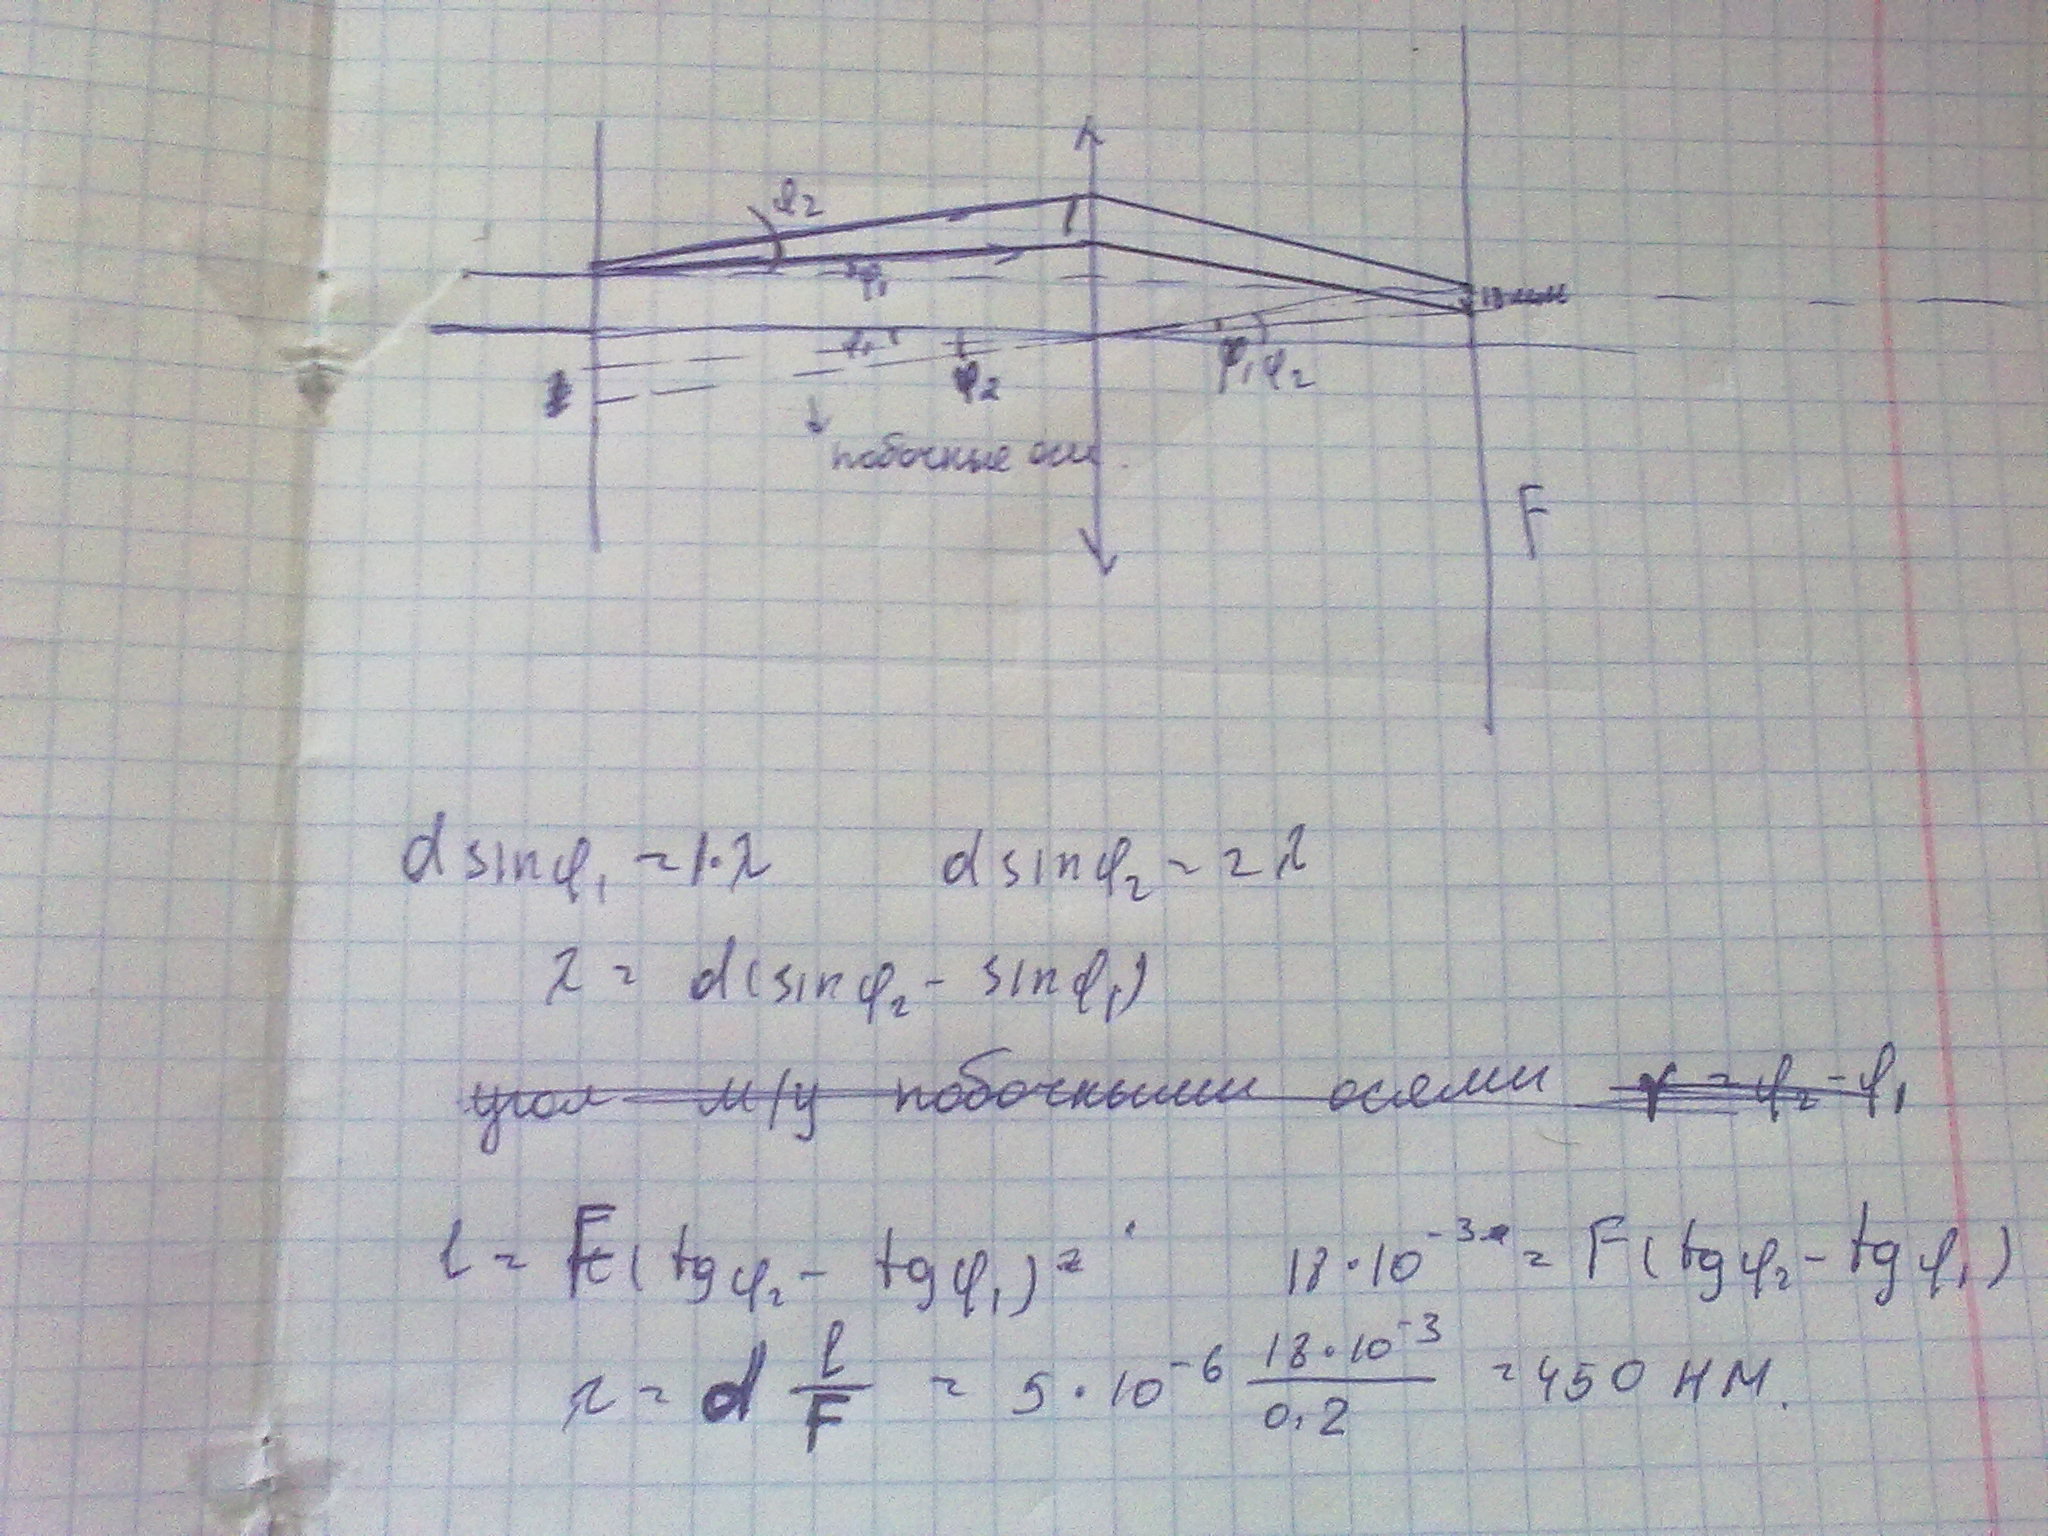 φ₂
φ₁
18мм
φ₁
φ₂
φ₁ φ₂
побочные оси.
F
d sinφ₁ = 1·λ d sinφ₂ = 2λ
λ = d(sinφ₂ - sinφ₁)
угол м/у побочными осями γ = φ₂ - φ₁
l = F(tgφ₂ - tgφ₁) = 18·10⁻³ = F(tgφ₂ - tgφ₁)
λ = d l/F = 5·10⁻⁶ 18·10⁻³/0.2 = 450 нм.